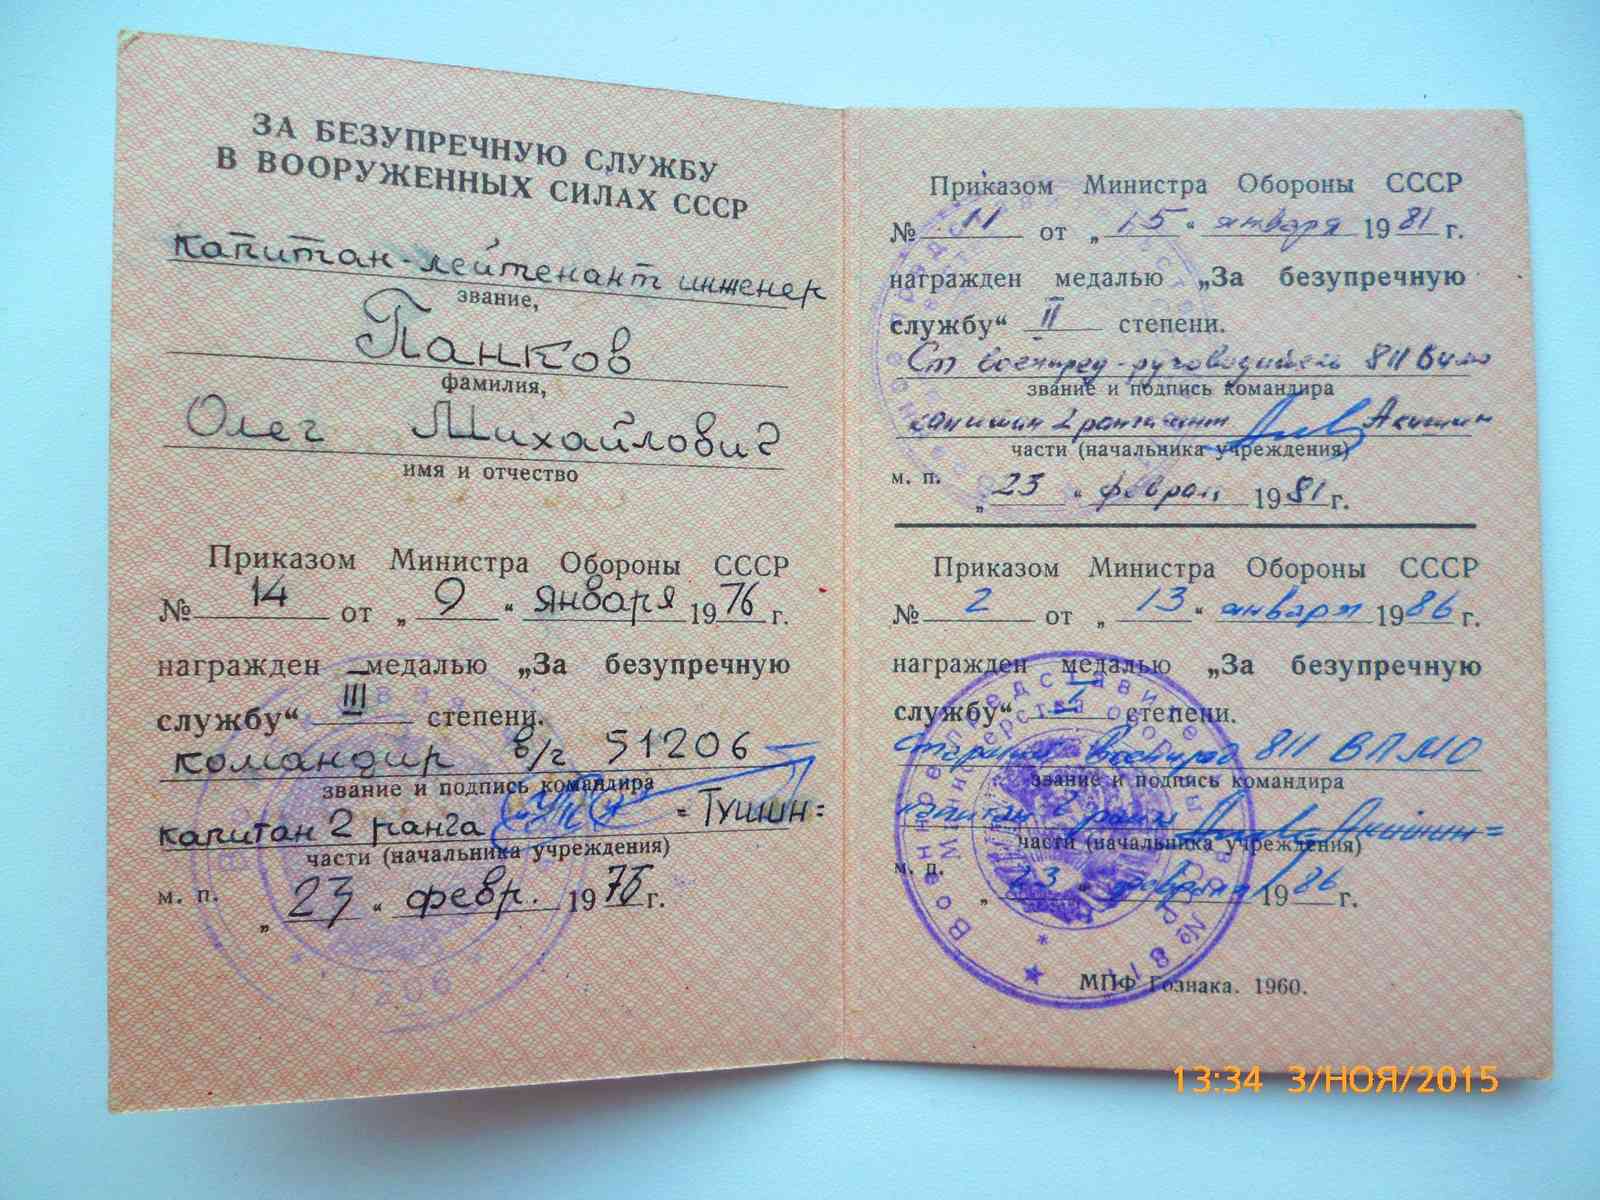 ЗА БЕЗУПРЕЧНУЮ СЛУЖБУ
В ВООРУЖЕННЫХ СИЛАХ СССР
капитан-лейтенант инженер
звание,
Панков
фамилия,
Олег Михайлович
имя и отчество
Приказом Министра Обороны СССР
№ 14 от „ 9 “ января 1976 г.
награжден медалью „За безупречную
службу“ III степени.
командир в/ч 51206
звание и подпись командира
капитан 2 ранга =Тушин=
части (начальника учреждения)
м. п. „ 23 “ февр. 1976 г.
206
Приказом Министра Обороны СССР
№ 11 от „ 15 “ января 1981 г.
награжден медалью „За безупречную
службу“ II степени.
Ст военпред-руководитель 811
звание и подпись командира
капитан 2 ранга Акишин
части (начальника учреждения)
м. п. „ 23 “ февраля 1981 г.
Приказом Министра Обороны СССР
№ 2 от „ 13 “ января 1986 г.
награжден медалью „За безупречную
службу“ I степени.
Старший военпред 811 ВПМО
звание и подпись командира
капитан 2 ранга Акишин=
части (начальника учреждения)
м. п. „ 23 “ февраля 1986 г.
Военное представительство № 811
Министерства обороны СССР
МПФ Гознака. 1960.
13:34 3/НОЯ/2015